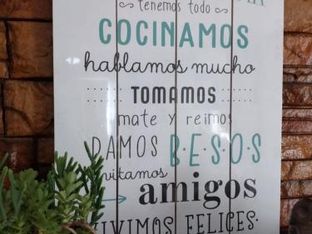 tenemos todo
COCINAMOS
hablamos mucho
TOMAMOS
mate y reimos
DAMOS BESOS
vitamos
amigos
VIVIMOS FELICES